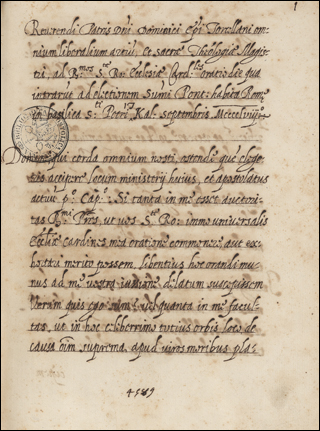 1
Reverendi Patris Dni Dominici Epi Torcellani om-
nium liberalium artiu, et sacræ Theologiæ Magis-
tri, ad Rmos Stæ Ro: Ecclesiæ Card. les oratio de qua
in basilica Sti Petri Kal. septembris
Domine qui corda omnium nosti, ostende quē elege-
ris accipere locum ministerij huius, et apostolatus
actuū po. Capo. Si tanta in me esset auctori-
tas Rmi Pres. ut vos Stæ Ro: immo universalis
Ecclīæ cardines mea oratione commonere aut ex-
hortari merito possem, libentius hoc orandi mu-
nus ad me vestra iussione delatum suscepissem
Verum quis ego sum? vel quanta in me facul-
tas, ut in hoc celiberrimo totius orbis loco de
causa oīm suprema apud viros moribus pla-
4589